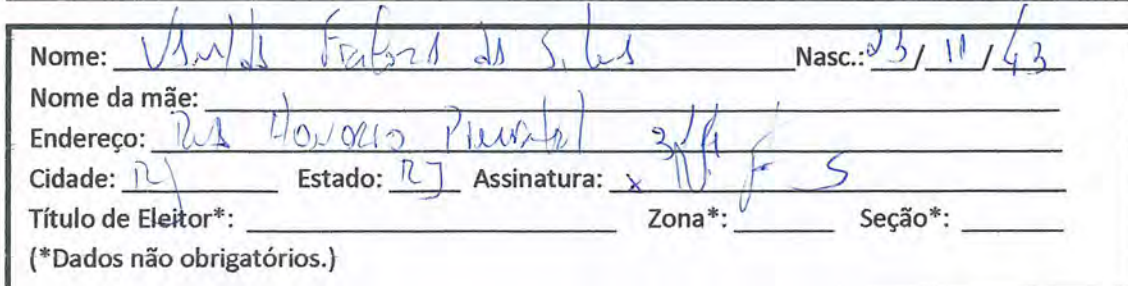 Nome: da Silva Nasc.: 23/11/43
Nome da mãe:
Endereço: Rua Honorio
Cidade: RJ Estado: RJ Assinatura: x N F S
Título de Eleitor*: Zona*: Seção*:
(*Dados não obrigatórios.)